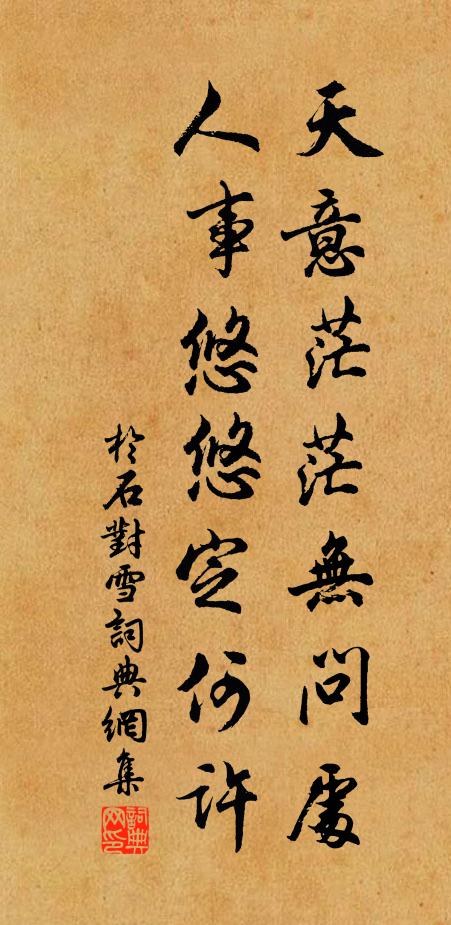 天意茫茫無問處
人事悠悠定何許
於石對雪詞典網集
詞典网印